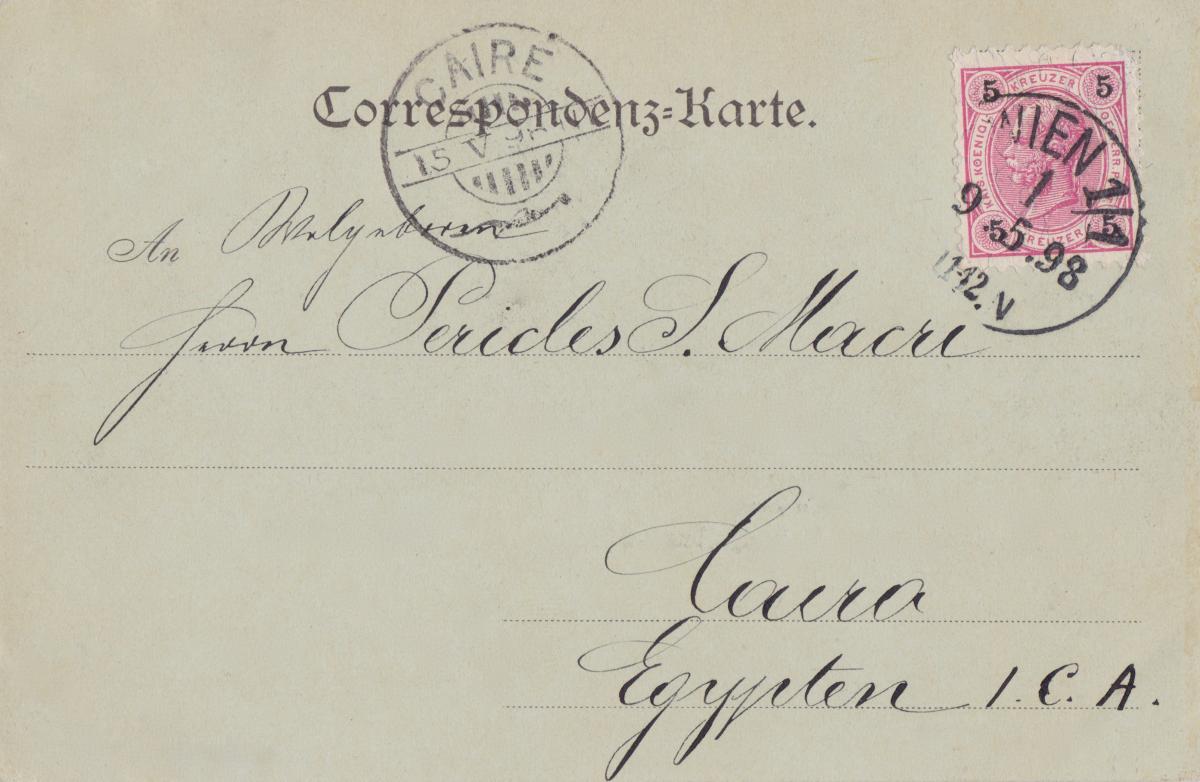 Correspondenz-Karte.
CAIRE
15 V 98
5 KREUZER 5
KAIS KOENIGL OESTERR
5 KREUZER 5
WIEN 1/1
9 1
5.98
11-12.N
An Wolgeboren
Herrn Pericles S. Macri
Cairo
Egypten 1. C. A.